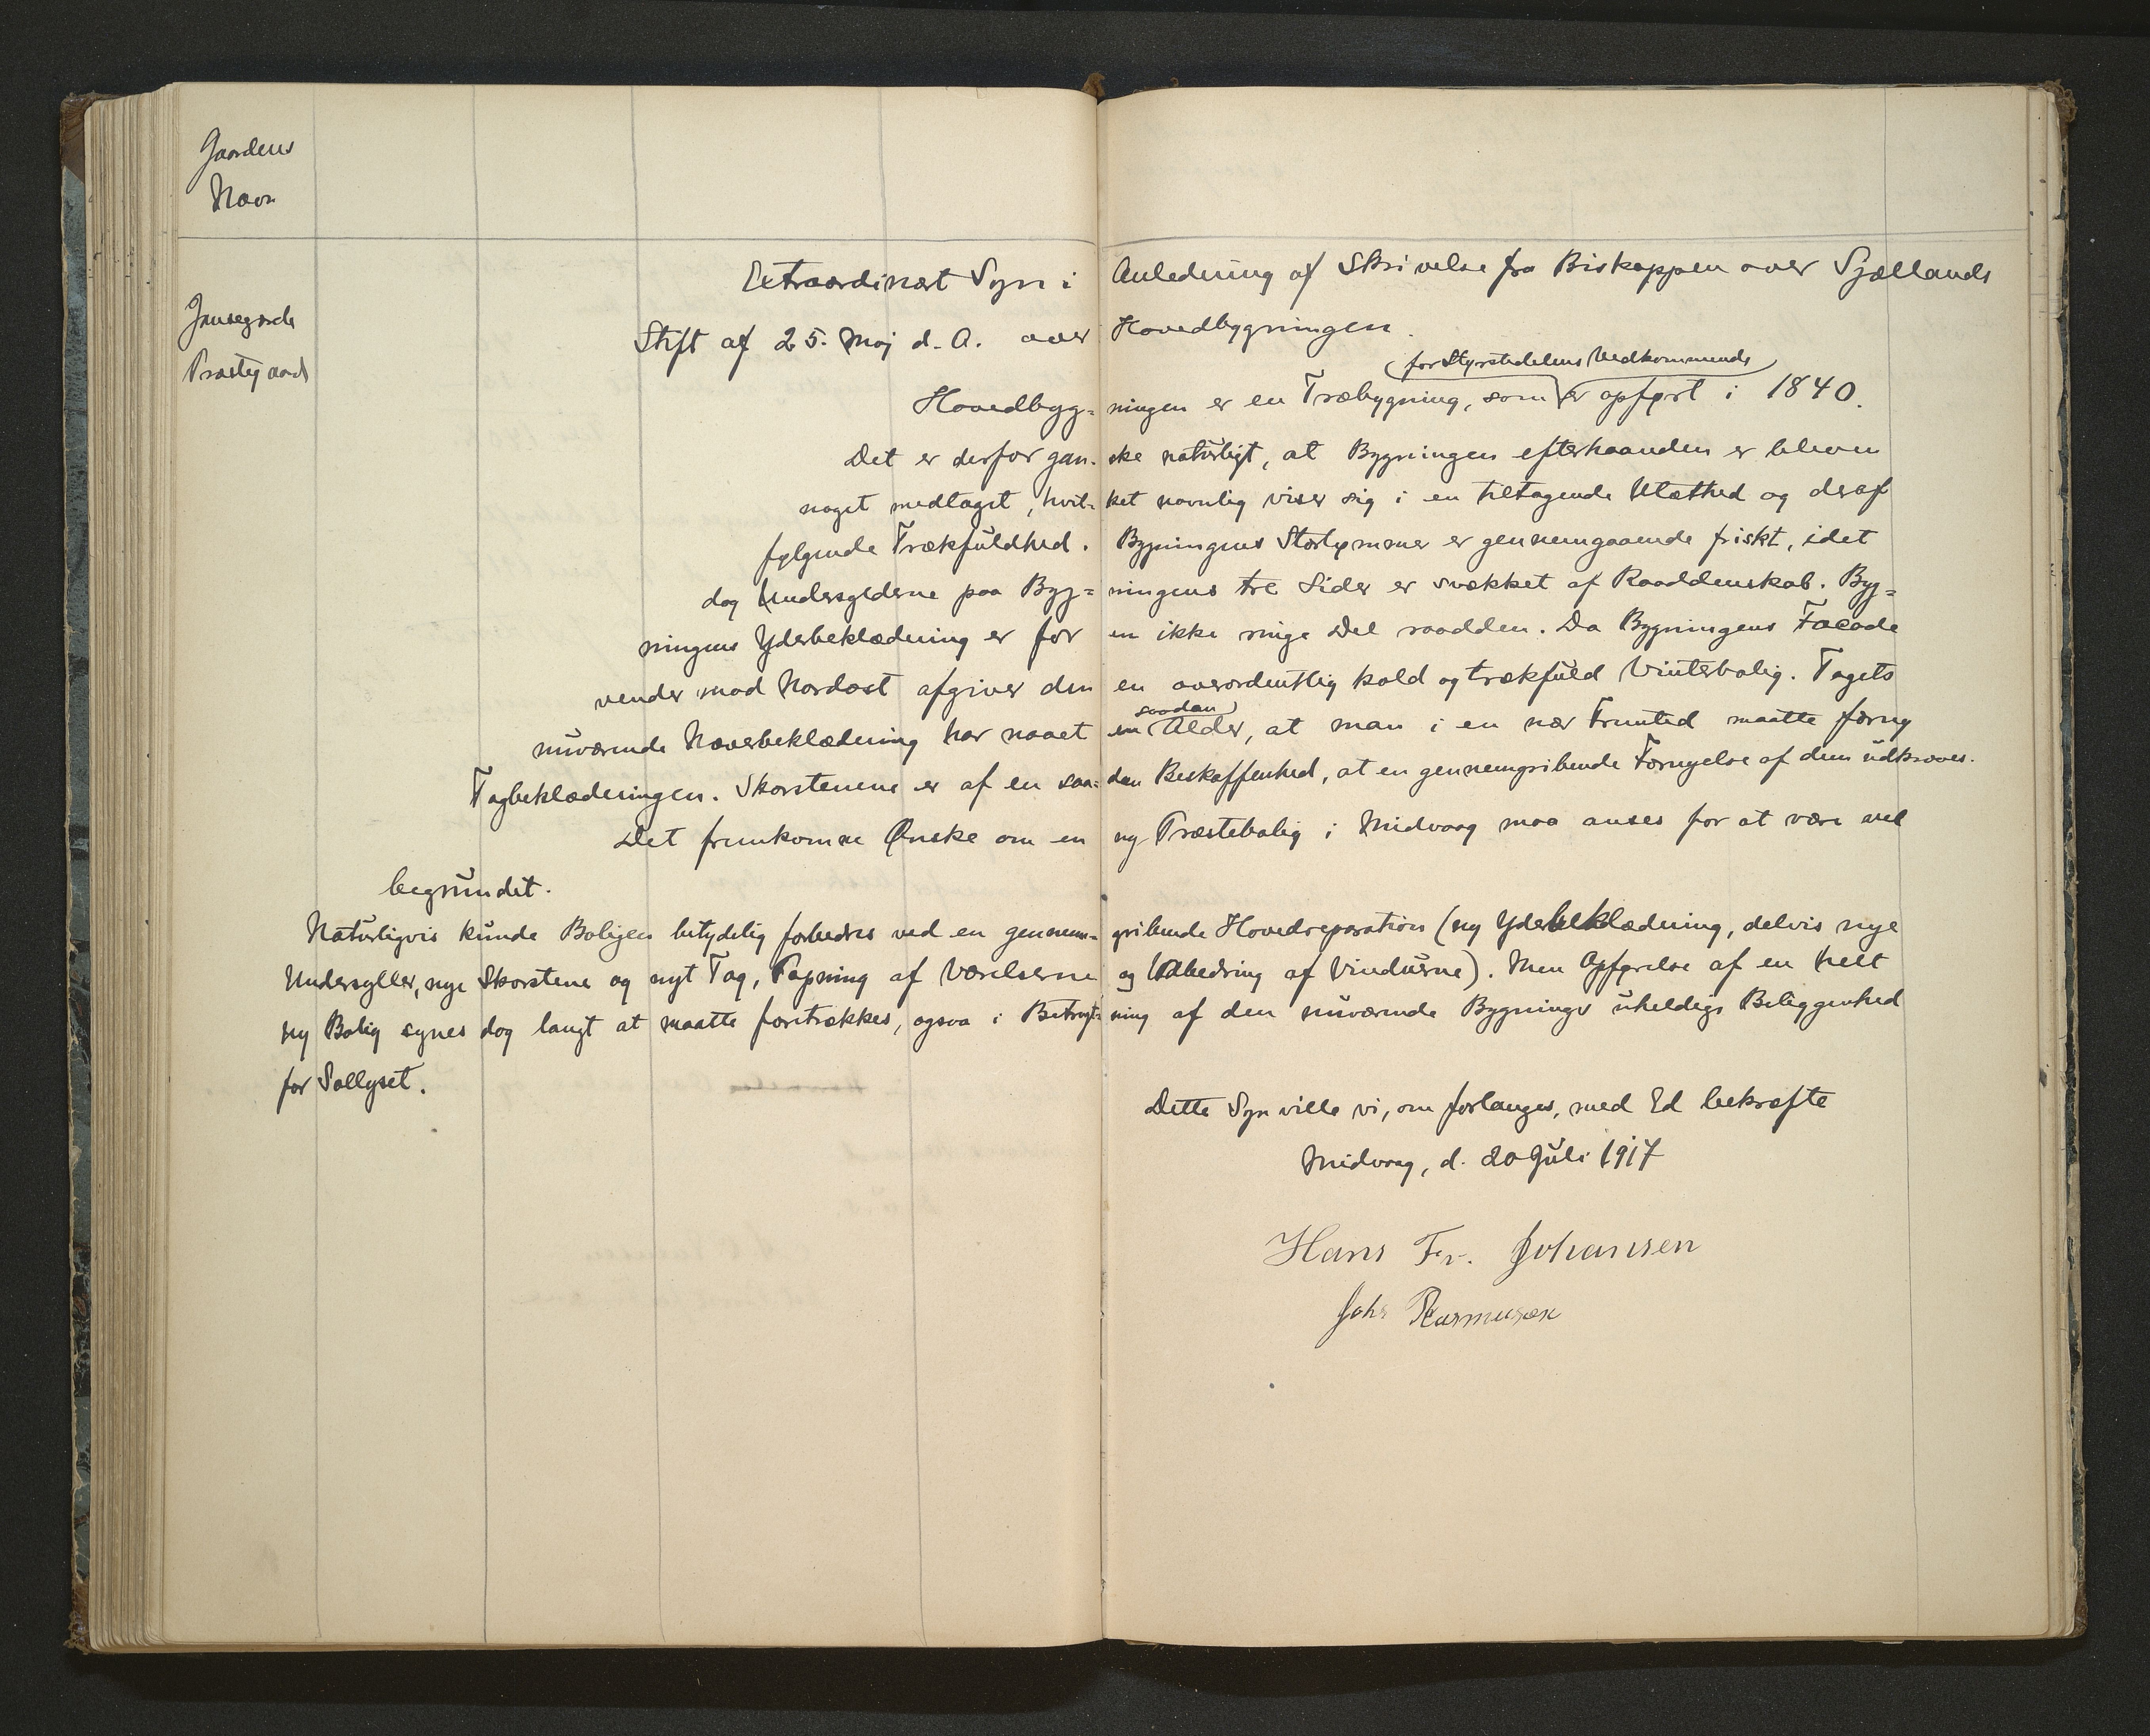 Gaardens
Navn
Jansegærde
Præstegaard
Extraordinært Syn i Anledning af Skrivelse fra Biskoppen over Sjællands
Stift af 25. Maj d. A. over Hovedbygningen.
(for Størstedelens Vedkommende)
Hovedbyg= ningen er en Træbygning, som er opført i 1840.
Det er derfor gan- ske naturligt, at Bygningen efterhaanden er bleven
noget medtaget, hvil- ket navnlig viser sig i en tiltagende Utæthed og deraf
følgende Trækfuldhed. Bygningens Stortømmer er gennemgaaende friskt, idet
dog Undersylderne paa Byg= ningens tre Sider er svækket af Raaddenskab. Byg=
ningens Yderbeklædning er for en ikke ringe Del raadden. Da Bygningens Facade
vender mod Nordost afgiver den en overordentlig kold og trækfuld Vinterbolig. Tagets
saadan
nuværende Næverbeklædning har naaet en Alder, at man i en nær Fremtid maatte forny
Tagbeklædningen. Skorstenene er af en saa- dan Beskaffenhed, at en gennemgribende Fornyelse af dem udkræves.
Det fremkomne Ønske om en ny Præstebolig i Midvaag maa anses for at være vel
begrundet.
Naturligvis kunde Boligen betydelig forbedres ved en gennem= gribende Hovedreparation (ny Yderbeklædning, delvis nye
Undersyller, nye Skorstene og nyt Tag, Papning af Værelserne og Udbedring af Vinduerne). Men Opførelse af en helt
ny Bolig synes dog langt at maatte foretrækkes, ogsaa i Betragt= ning af den nuværende Bygnings uheldige Beliggenhed
for Sollyset.
Dette Syn ville vi, om forlanges, med Ed bekræfte
Midvaag, d. 20 Juli 1917
Hans Fr. Johansen
Johs Rasmusen